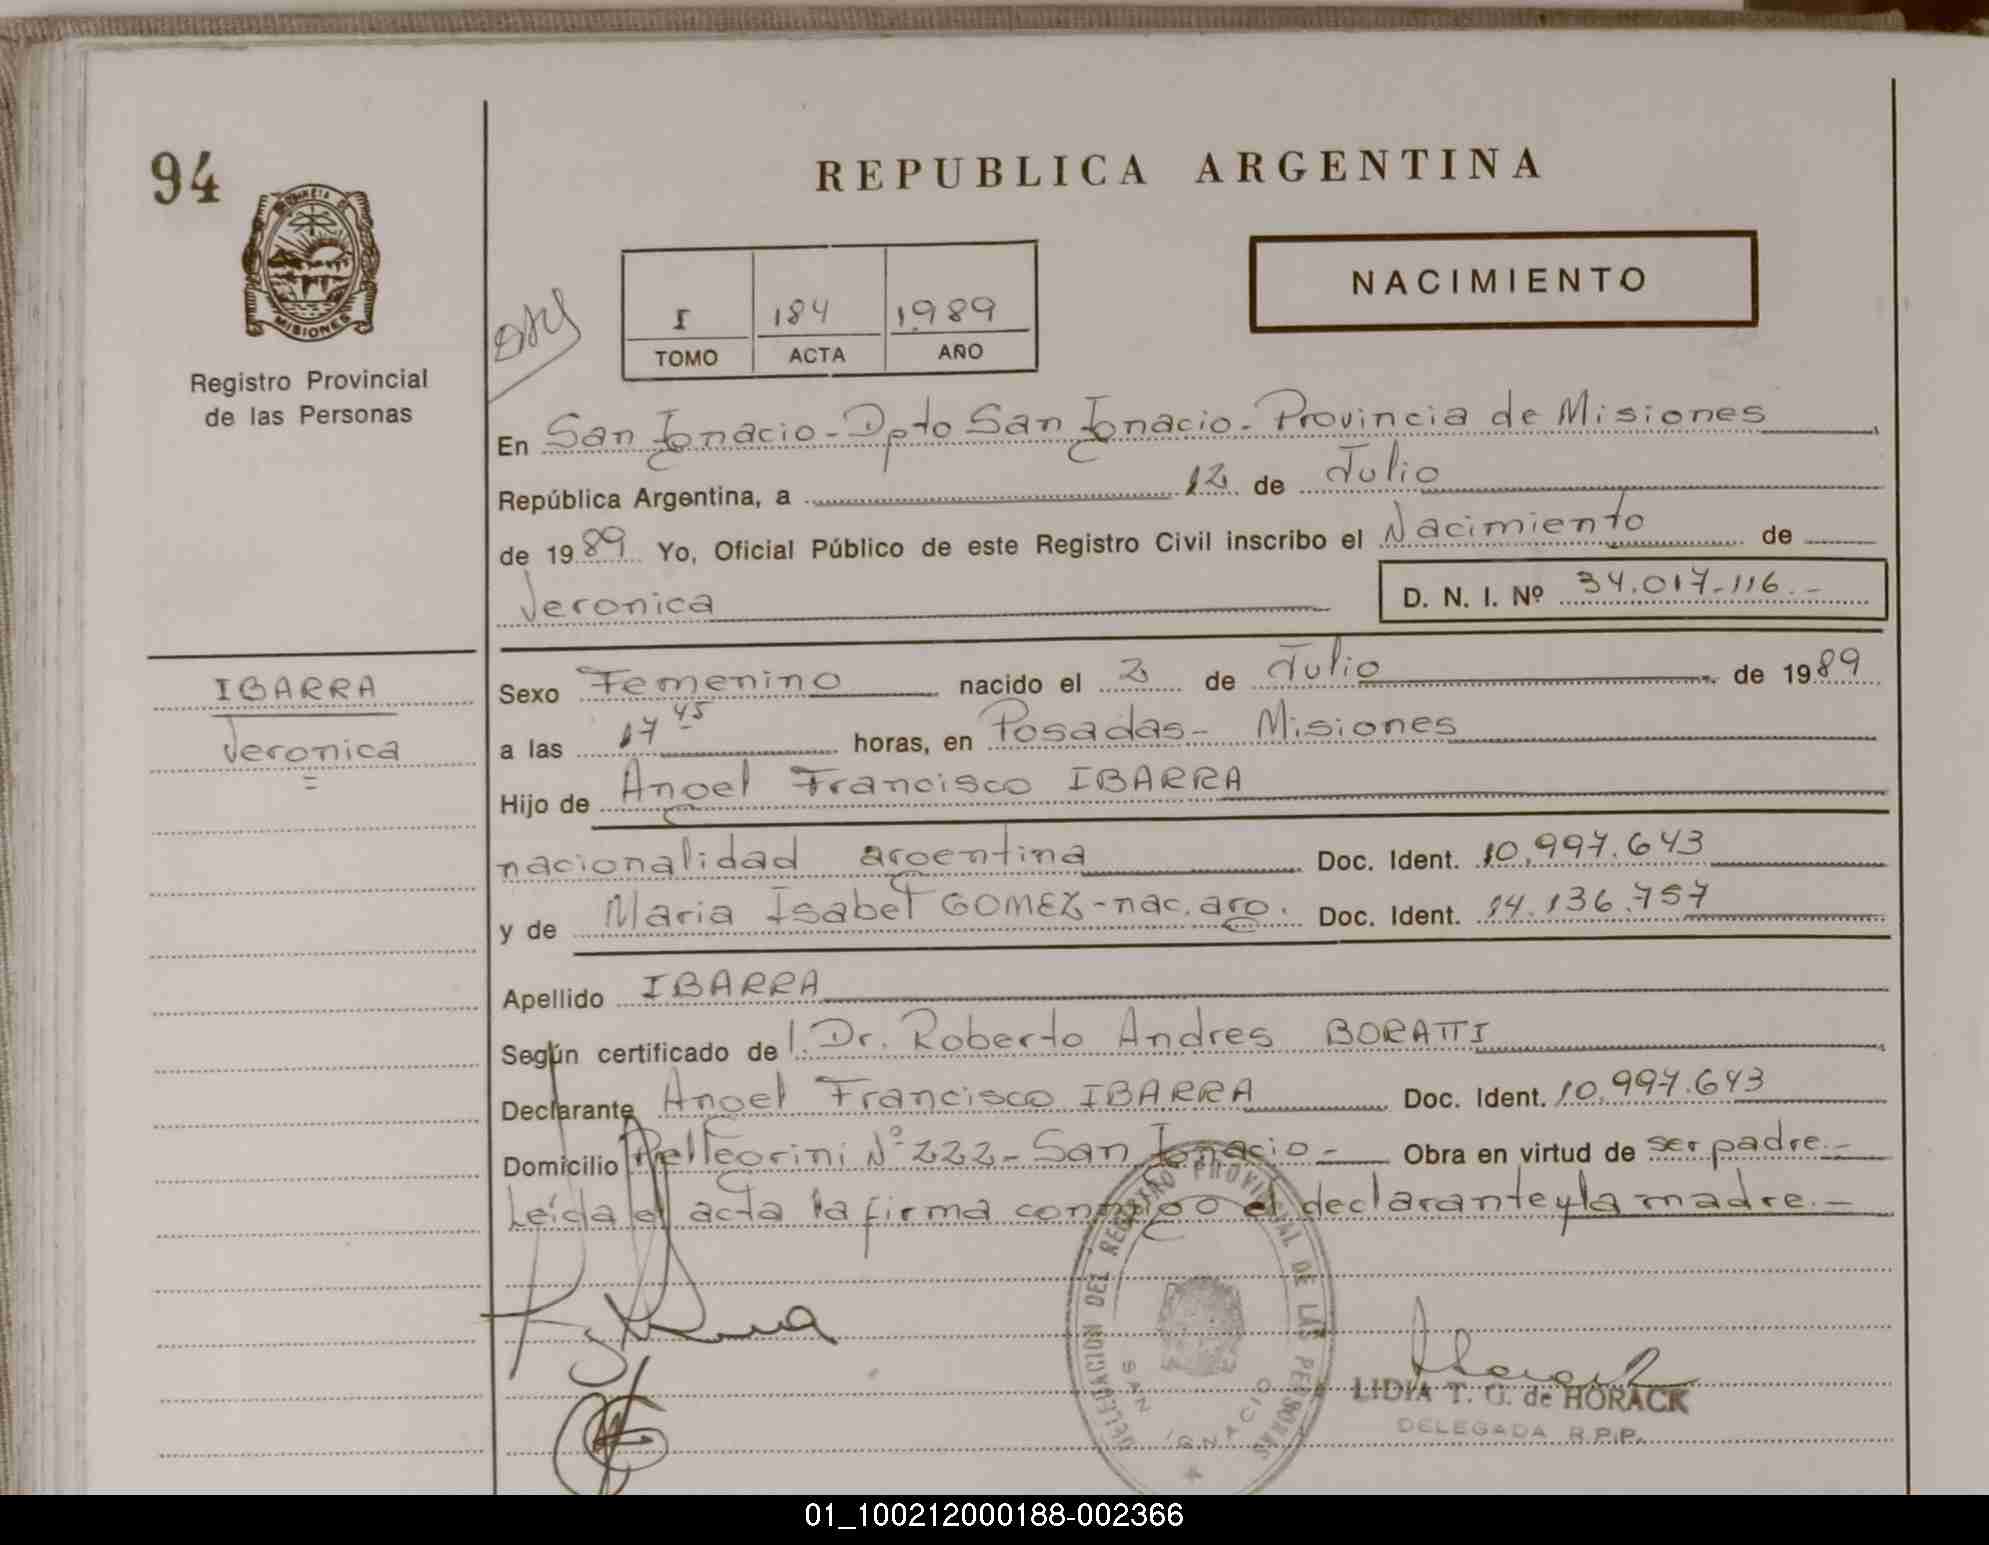 94
REPUBLICA ARGENTINA
NACIMIENTO
I 184 1989
TOMO ACTA AÑO
MISIONES
Registro Provincial
de las Personas
En San Ignacio - Dpto San Ignacio - Provincia de Misiones
República Argentina, a 12 de Julio
de 1989 Yo, Oficial Público de este Registro Civil inscribo el Nacimiento de
Veronica D. N. I. Nº 34.017.116.-
IBARRA
Veronica
Sexo Femenino nacido el 2 de Julio de 1989
a las 17 45 horas, en Posadas - Misiones
Hijo de Angel Francisco IBARRA
nacionalidad argentina Doc. Ident. 10.997.643
y de Maria Isabel GOMEZ - nac. arg. Doc. Ident. 14.136.757
Apellido IBARRA
Según certificado de Dr. Roberto Andres BORATTI
Declarante Angel Francisco IBARRA Doc. Ident. 10.997.643
Domicilio Pellegrini Nº 222 - San Ignacio - Obra en virtud de ser padre.-
Leída el acta la firma conmigo el declarante y la madre.-
DELEGACION DEL REGISTRO PROVINCIAL DE LAS PERSONAS
SAN IGNACIO
LIDIA T. U. de HORACK
DELEGADA R.P.P.
01_100212000188-002366